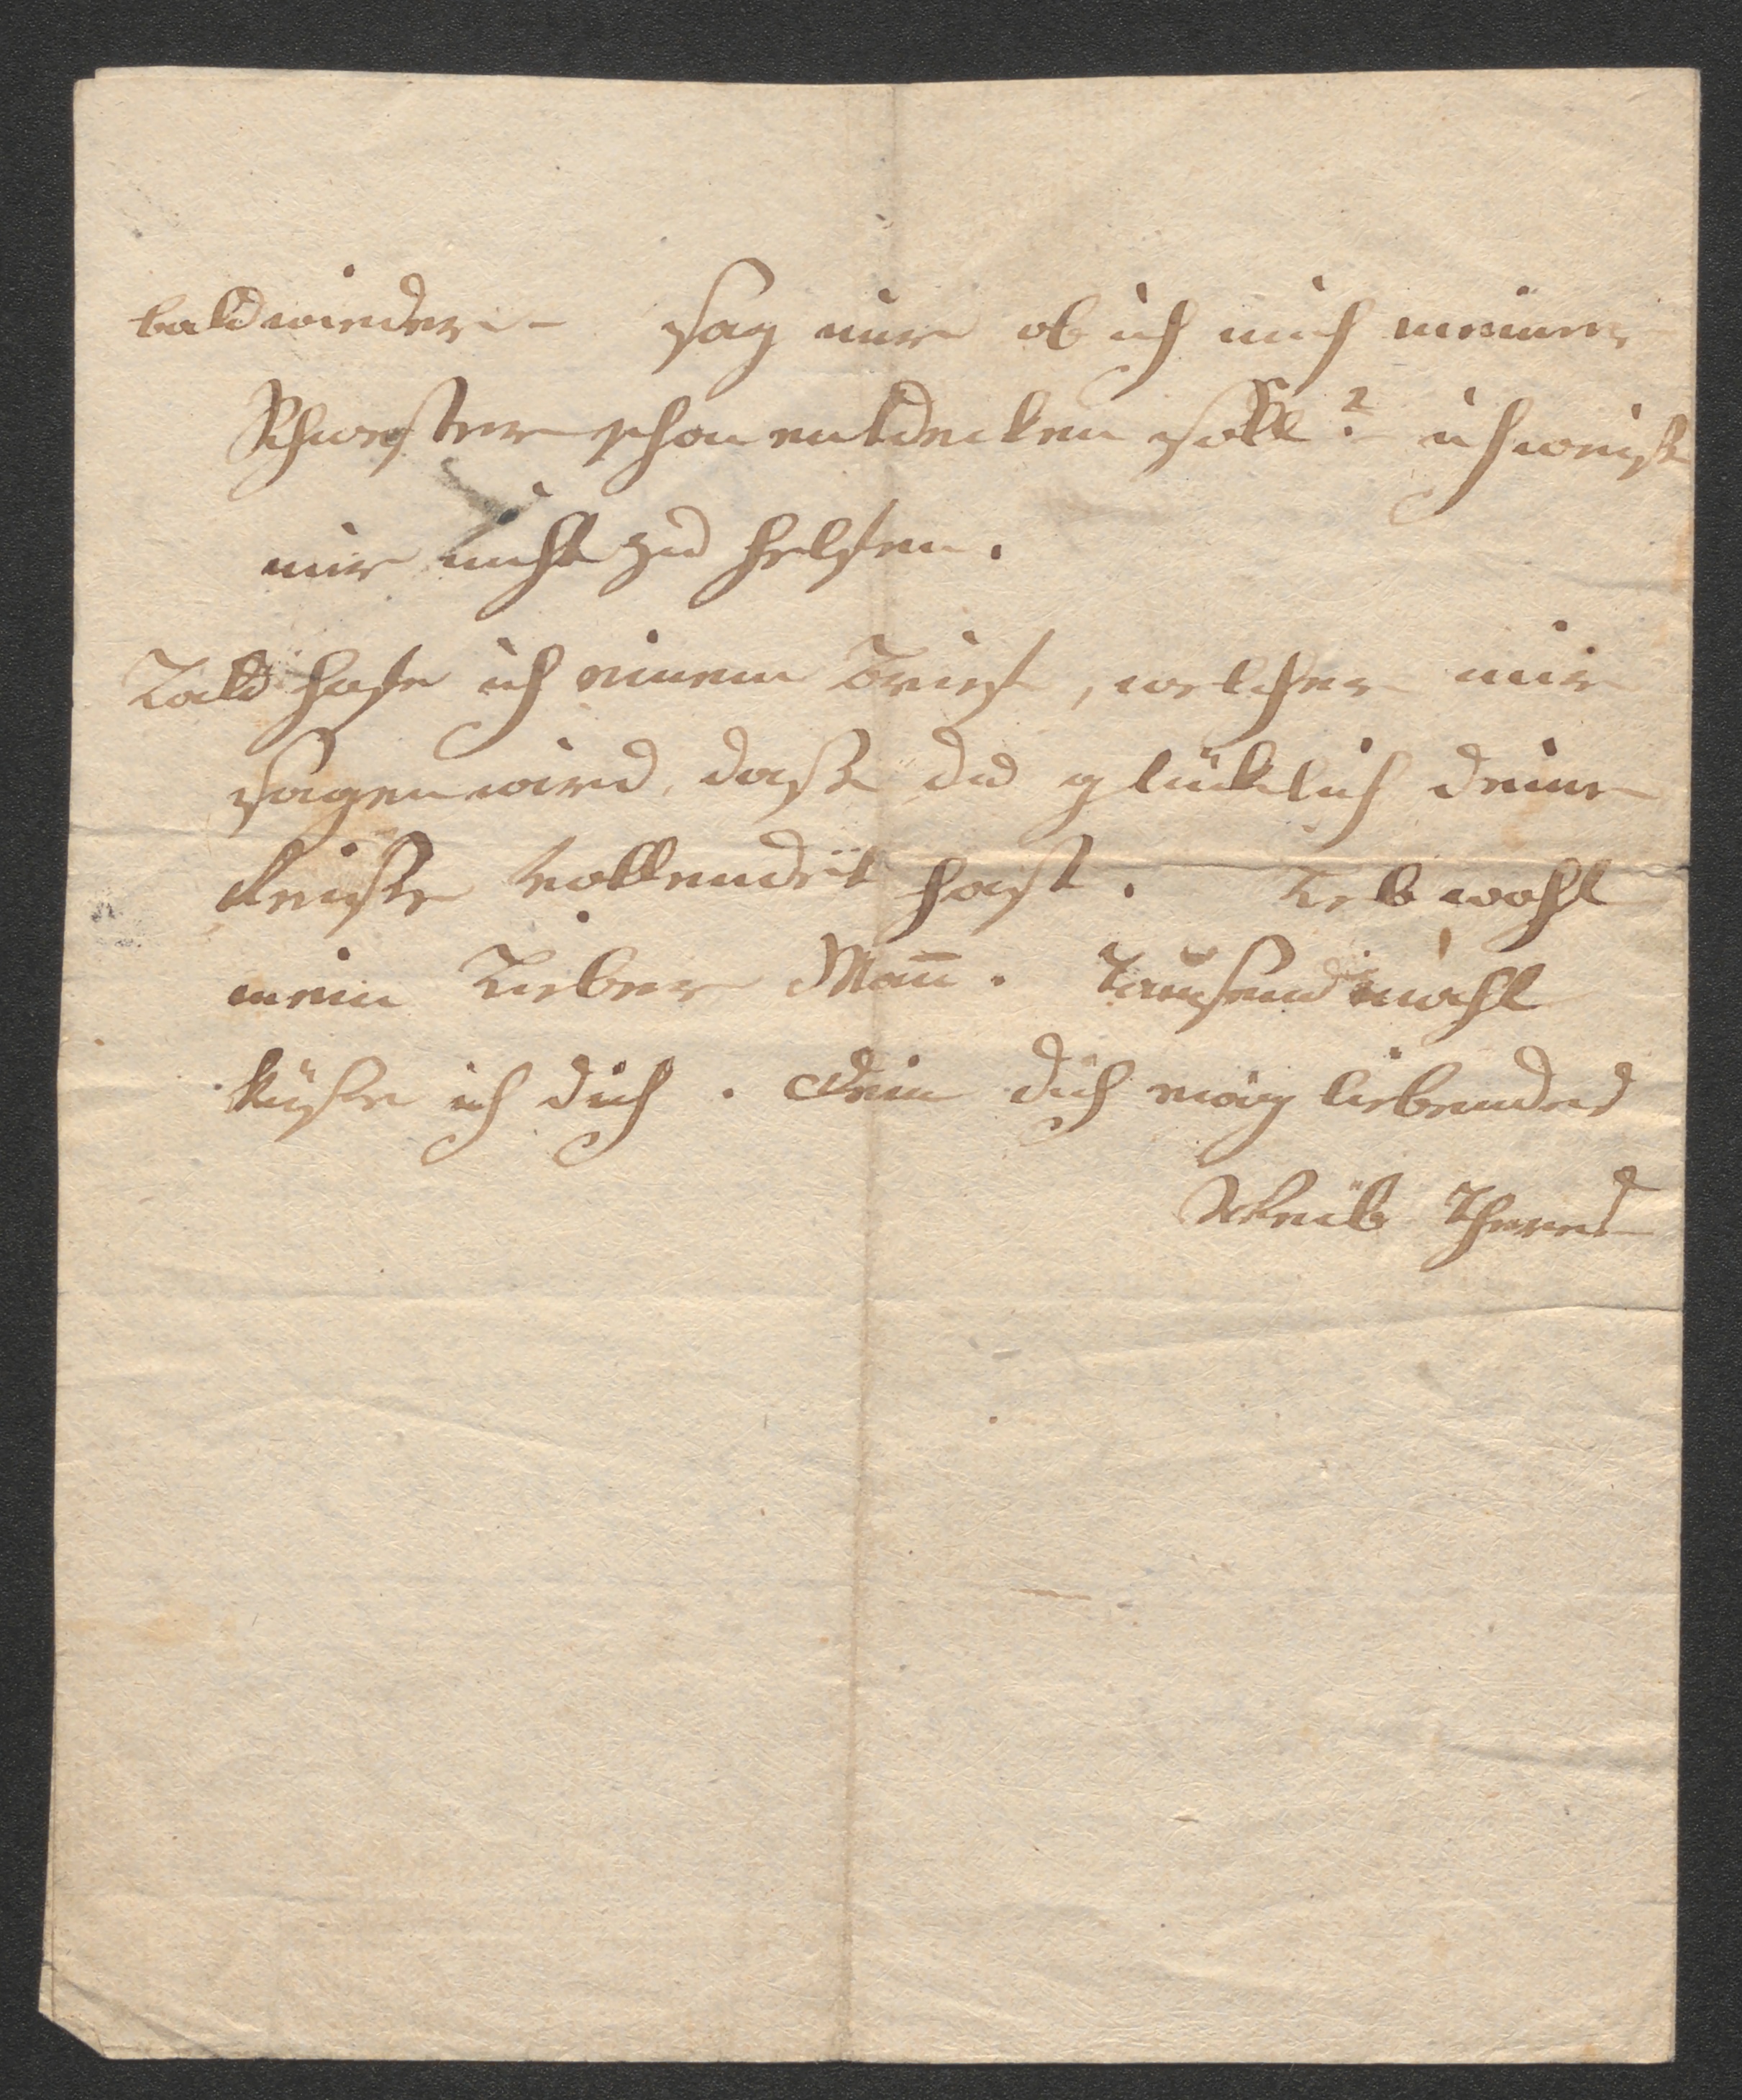 bald wieder – sag mir ob ich mich meiner
Schwester schon entdecken soll? – ich weiß
mir nicht zu helfen.
Bald hofe ich einem Brief, welcher mir
sagen wird, daß du glücklich deine
Reiße vollendet hast. Leb wohl
mein Lieber Man̄. Tausend mahl
küße ich dich. Dein dich ewig liebendes
Weib Theres